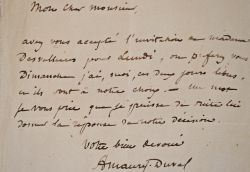 Mon cher monsieur,
avez vous accepté l'invitation de madame
Desvallières pour Lundi, ou préférez vous
Dimanche j'ai, moi, ces deux jours libres,
et ils sont à votre choix. — un mot
je vous prie que je puisse de suite lui
donner la réponse de votre décision.
Votre bien dévoué
Amaury-Duval